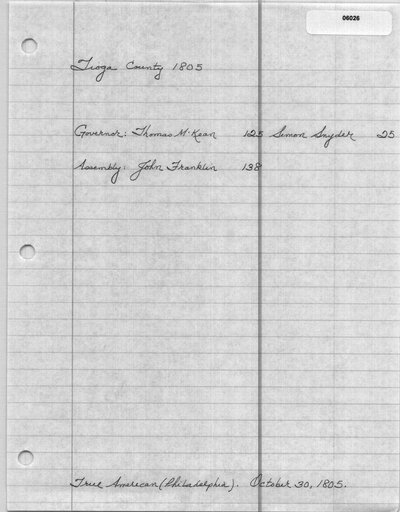 06026
Tioga County 1805
Governor: Thomas McKean 125 Simon Snyder 25
Assembly: John Franklin 138
True American (Philadelphia). October 30, 1805.